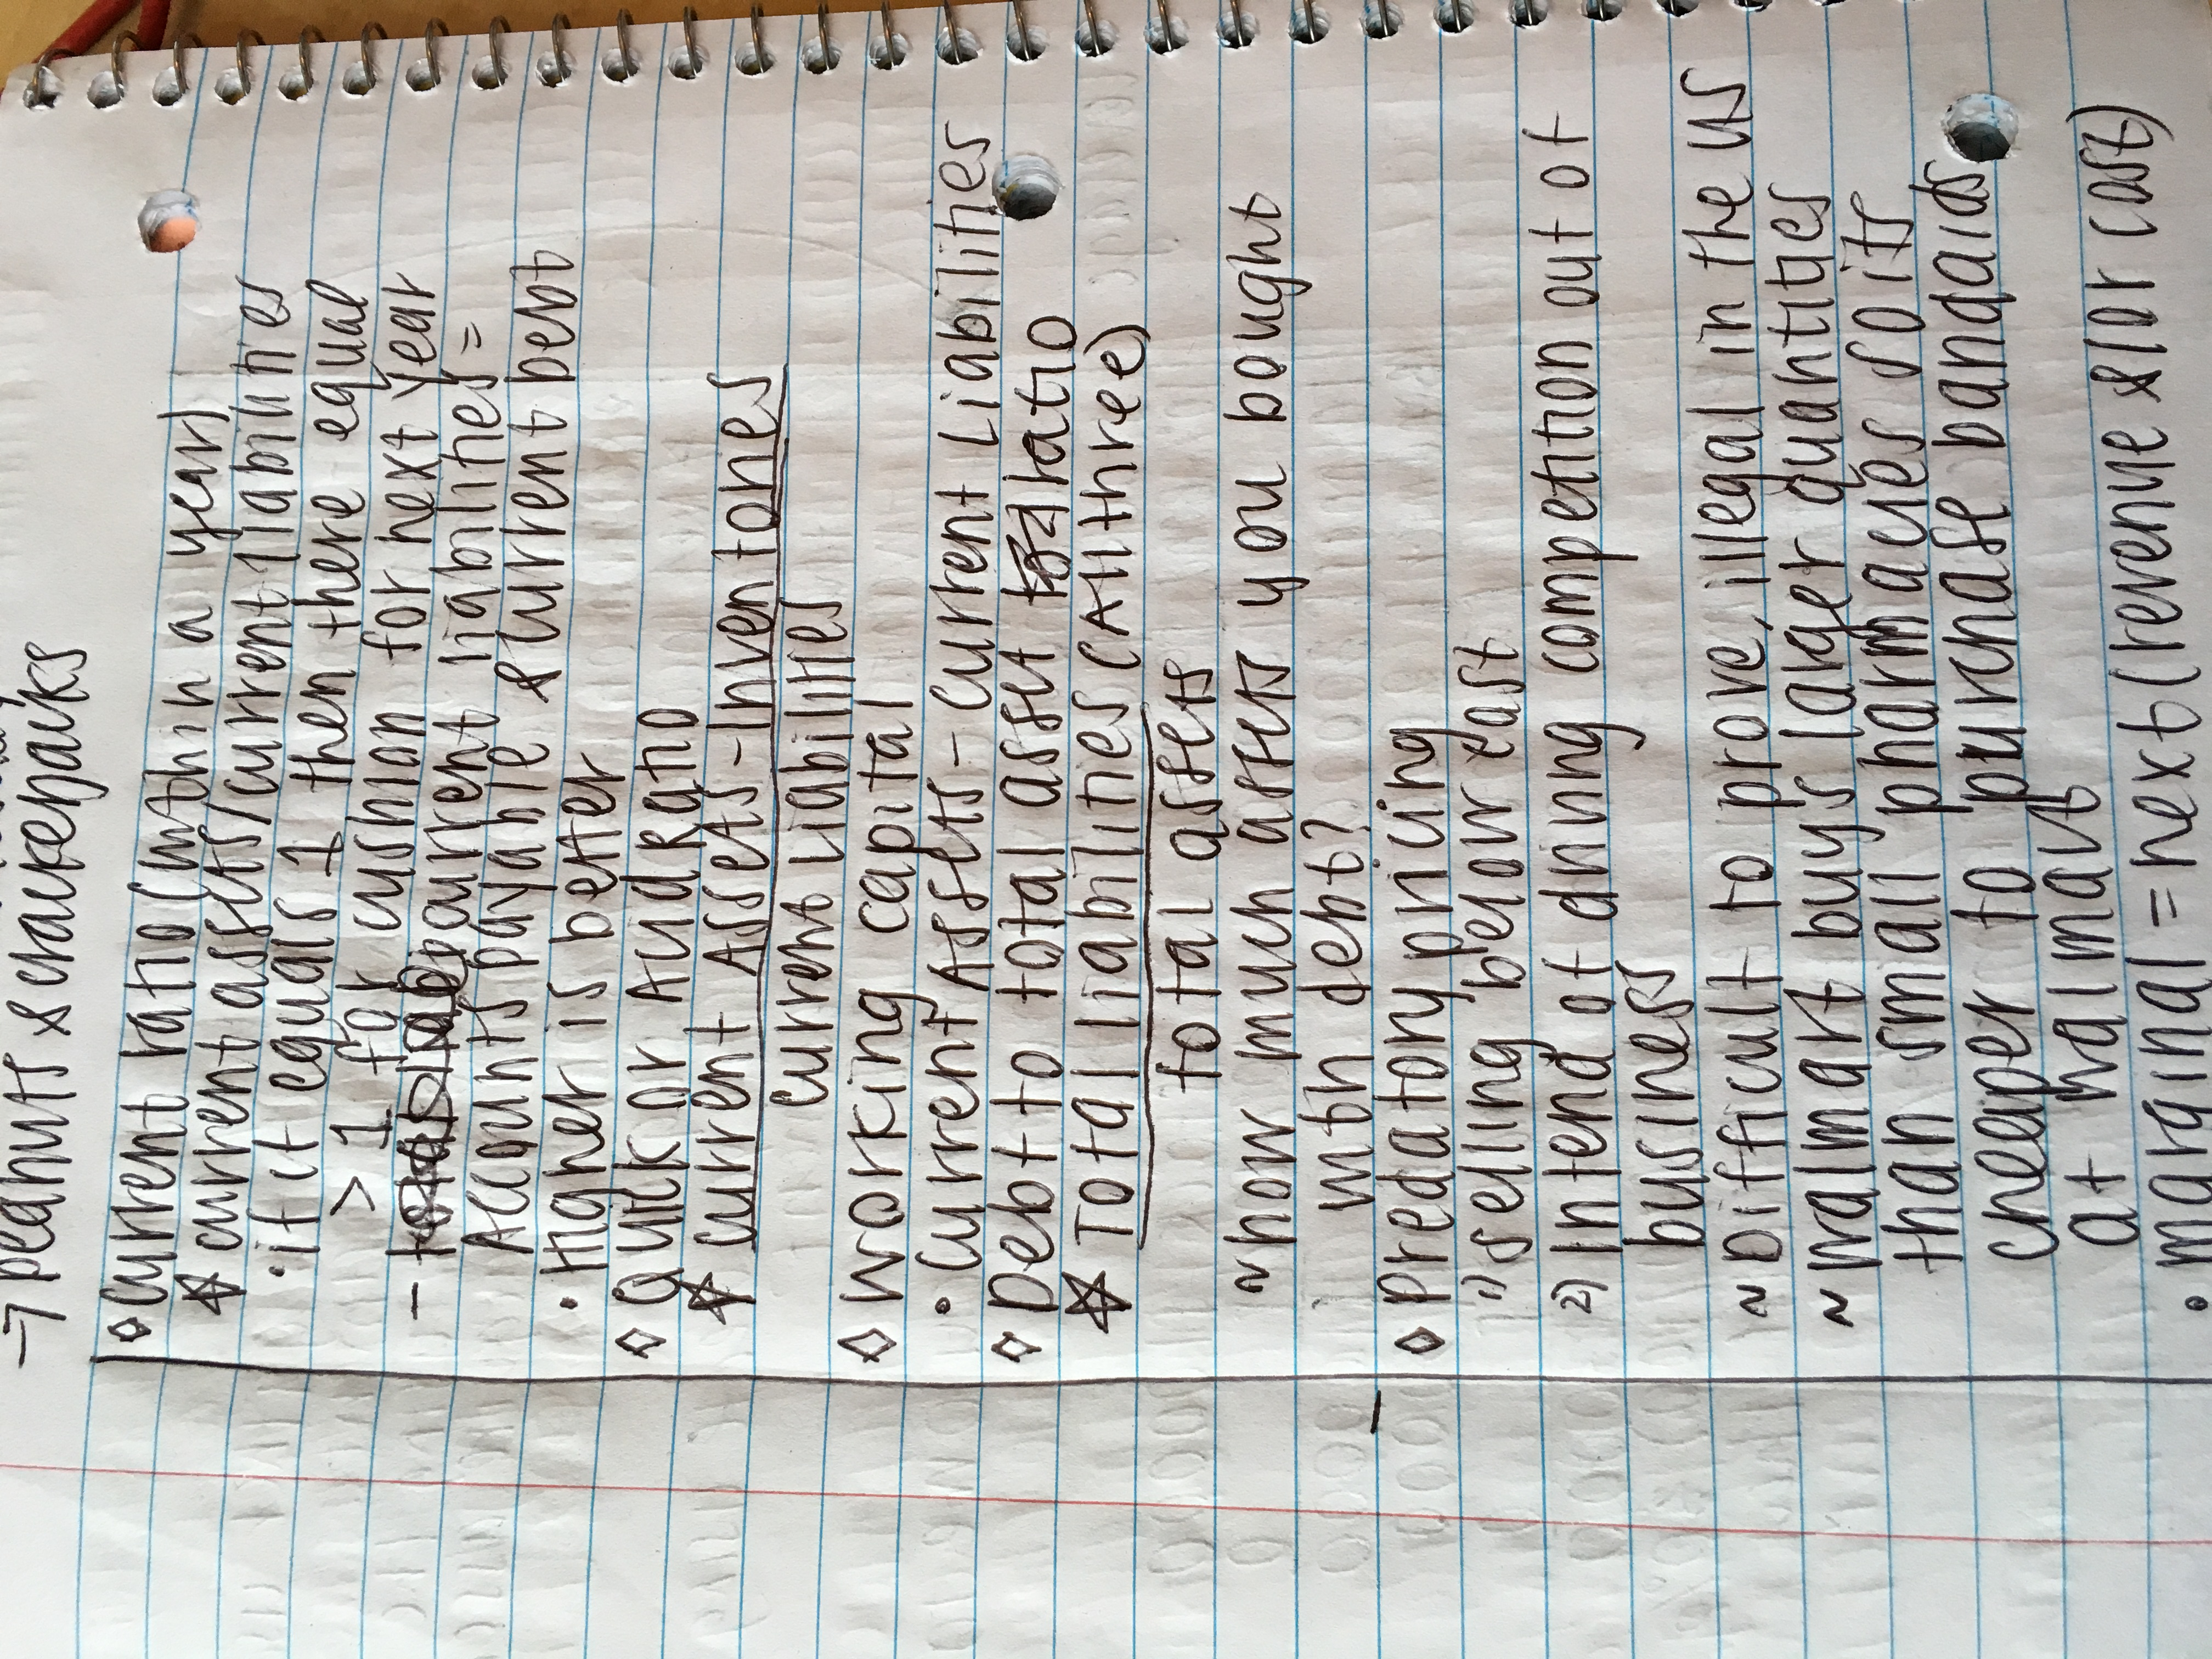 → peanuts & crackerjacks
◇ Current ratio (within a year)
☆ current assets/current liabilities
• if it equals 1 then there equal
> 1 for cushion for next year
- current liabilities =
Accounts payable & current debt
• Higher is better
◇ Quick or Acid Ratio
☆ Current Assets - Inventories
Current Liabilities
◇ Working capital
• Current Assets - Current Liabilities
◇ Debt to total asset Ratio
☆ Total liabilities (All three)
total assets
~ how much assets you bought
with debt?
◇ Predatory pricing
1) selling below cost
2) Intend of driving competition out of
business
~ Difficult to prove, illegal in the US
~ walmart buys larger quantities
than small pharmacies so its
cheaper to purchase bandaids
at walmart
• marginal = next (revenue &/or cost)